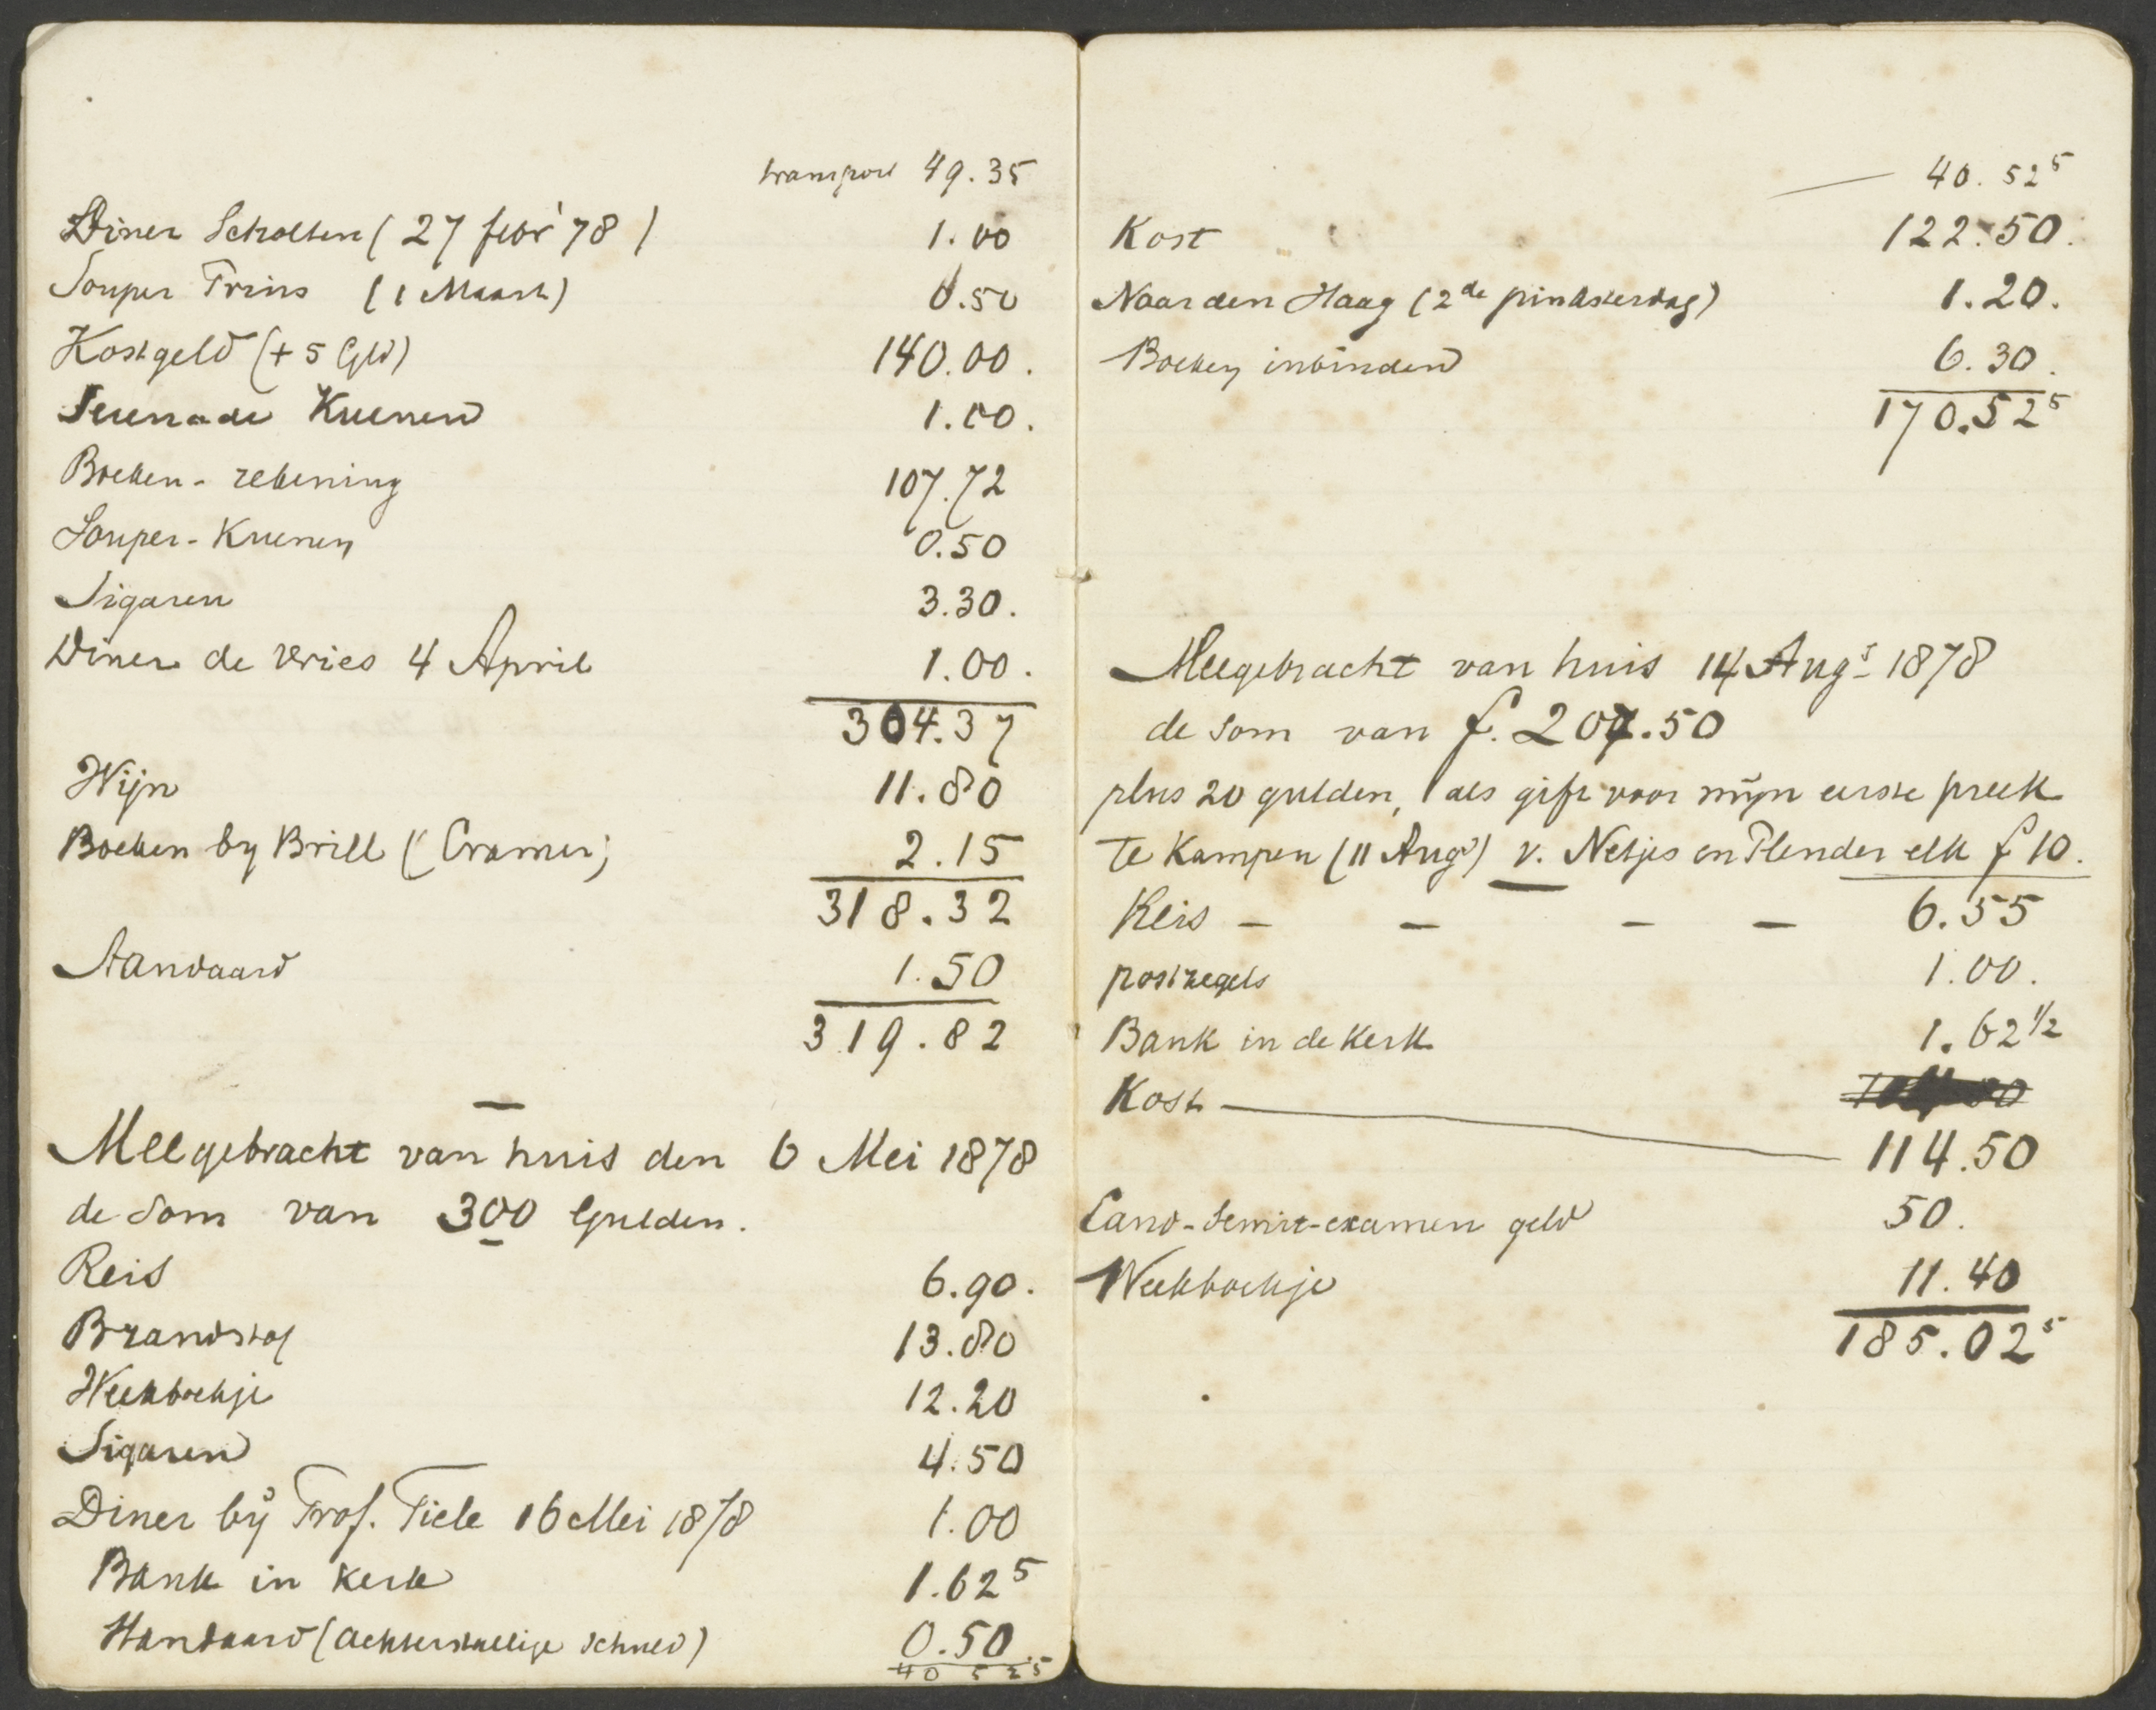 transport 49.35
Diner Scholten (27 febr '78) 1.00
Souper Prins (1 Maart) 0.50
Kostgeld (+ 5 Gld) 140.00.
Serenade Kuenen 1.00.
Boeken-rekening 107.72
Souper-Kuenen 0.50
Sigaren 3.30.
Diner de Vries 4 April 1.00.
304.37
Wijn 11.80
Boeken by Brill (Cramer) 2.15
318.32
Standaard 1.50
319.82
Meegebracht van huis den 6 Mei 1878
de som van 300 Gulden.
Reis 6.90.
Brandstof 13.80
Weekboekje 12.20
Sigaren 4.50
Diner bij Prof. Tiele 16 Mei 1878 1.00
Bank in kerk 1.62⁵
Standaard (achterstallige schuld) 0.50
40 52⁵
— 40.52⁵
Kost 122.50.
Naar den Haag (2de pinksterdag) 1.20.
Boeken inbinden 6.30.
170.52⁵
Meegebracht van huis 14 Augs 1878
de som van f. 207.50
plus 20 gulden, als gift voor mijn eerste preek
te Kampen (11 Augs) v. Netjes en Plender elk f 10.
Reis - - - - 6.55
postzegels 1.00.
Bank in de Kerk 1.62 1/2
Kost
114.50
Cand-Semit-examen geld 50.
Weekboekje 11.40
185.02⁵